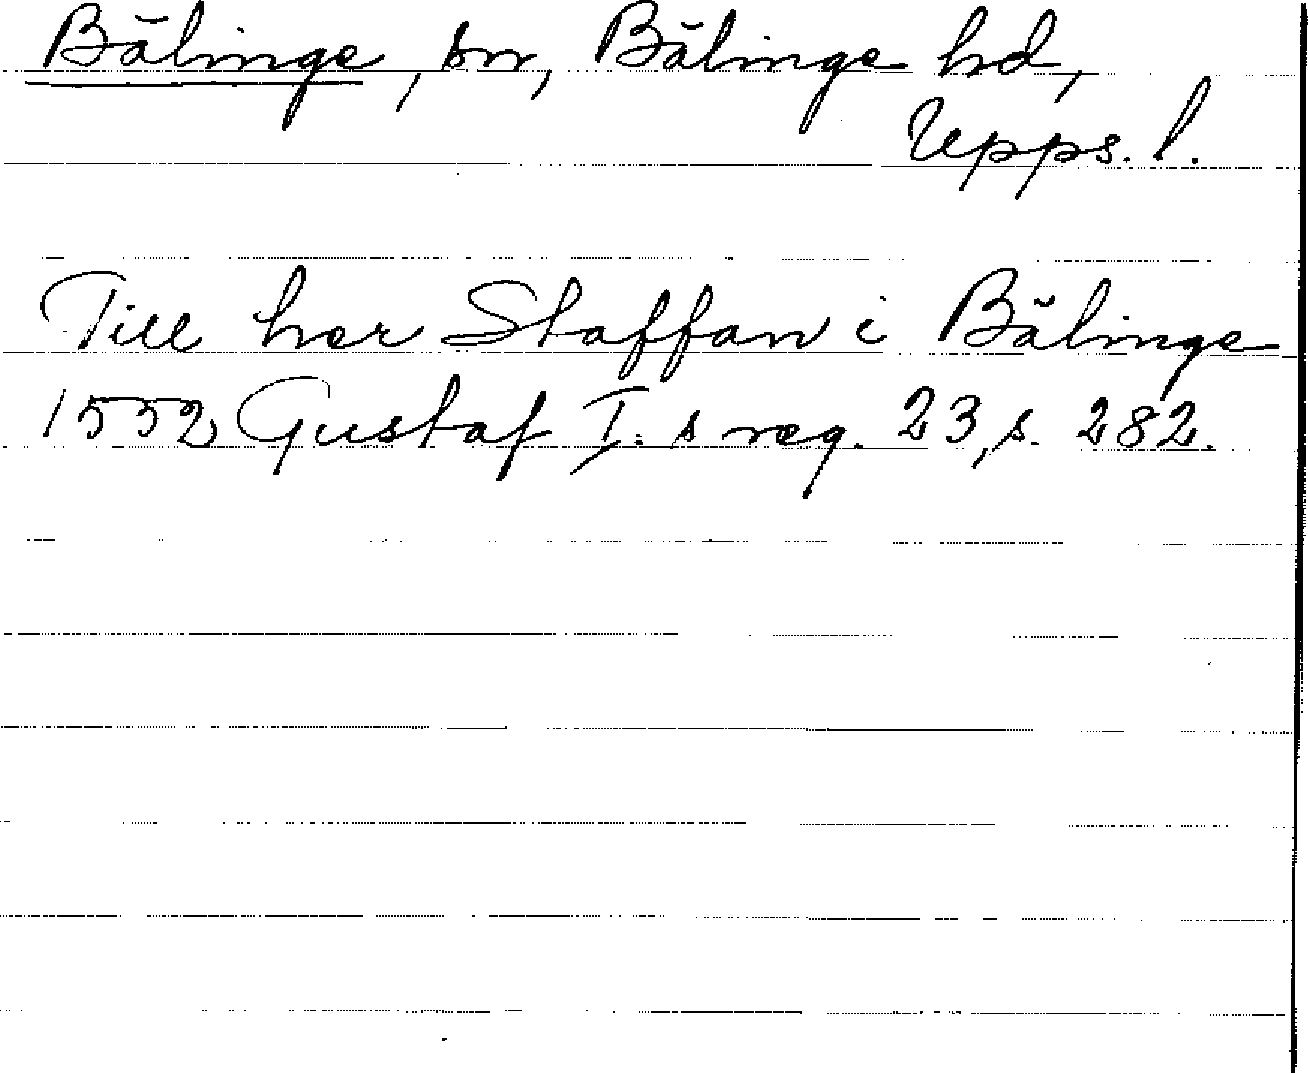 Bälinge, sn, Bälinge hd,
Upps. l.
Till her Staffan i Bälinge
1552 Gustaf I:s reg. 23, s. 282.